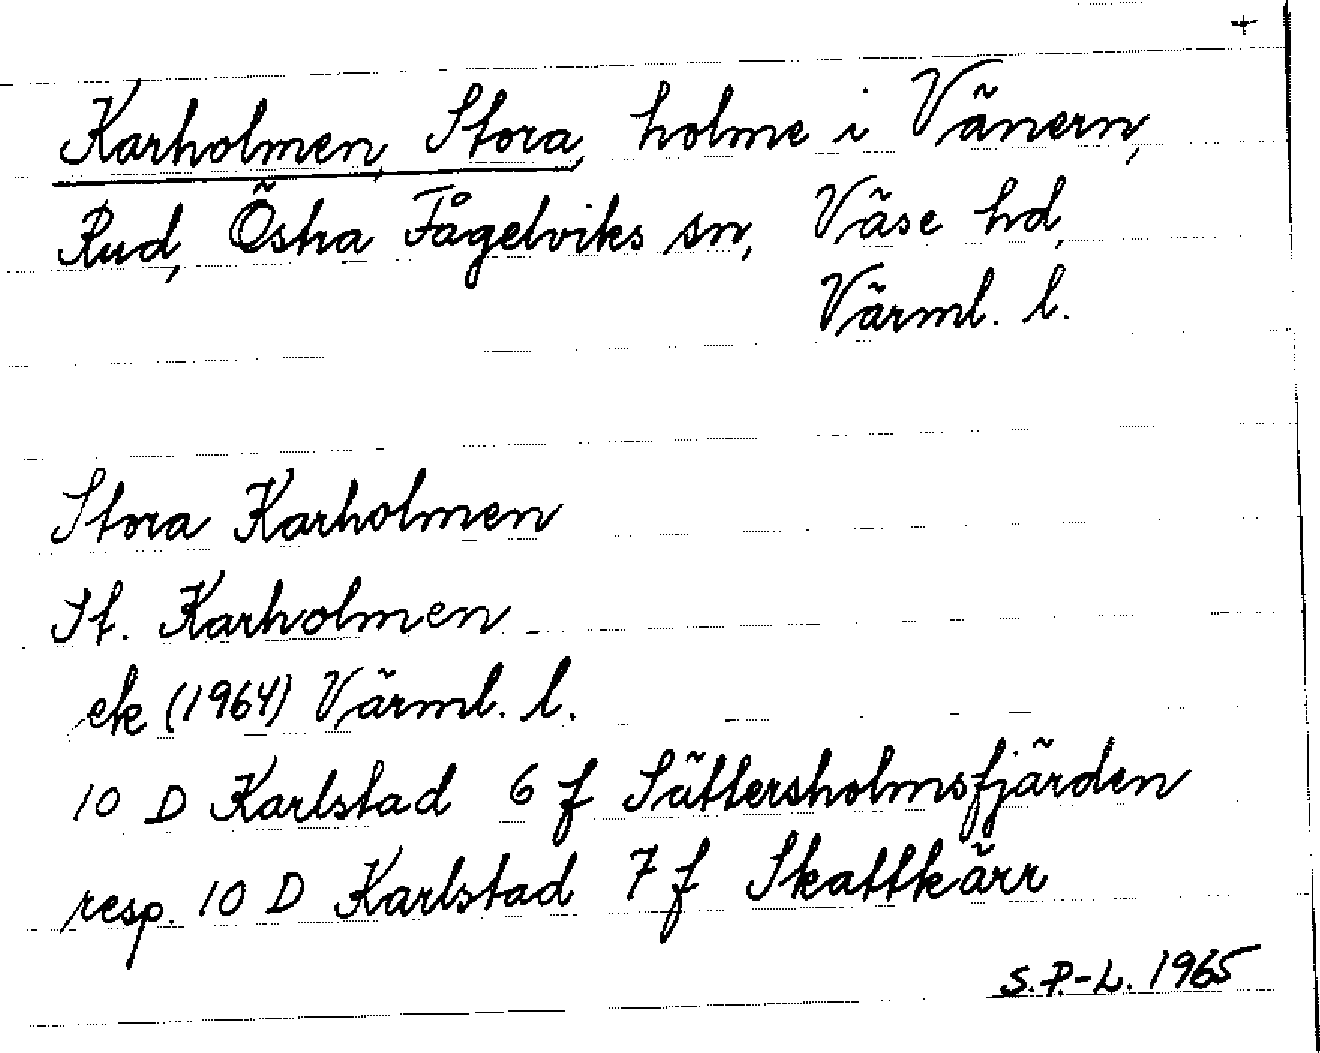 +
Karholmen, Stora, holme i Vänern,
Rud, Östra Fågelviks sn, Väse hd,
Värml. l.
Stora Karholmen
St. Karholmen
ek (1964) Värml. l.
10 D Karlstad 6 f Sättersholmsfjärden
resp. 10 D Karlstad 7 f Skattkärr
S.P.-L. 1965